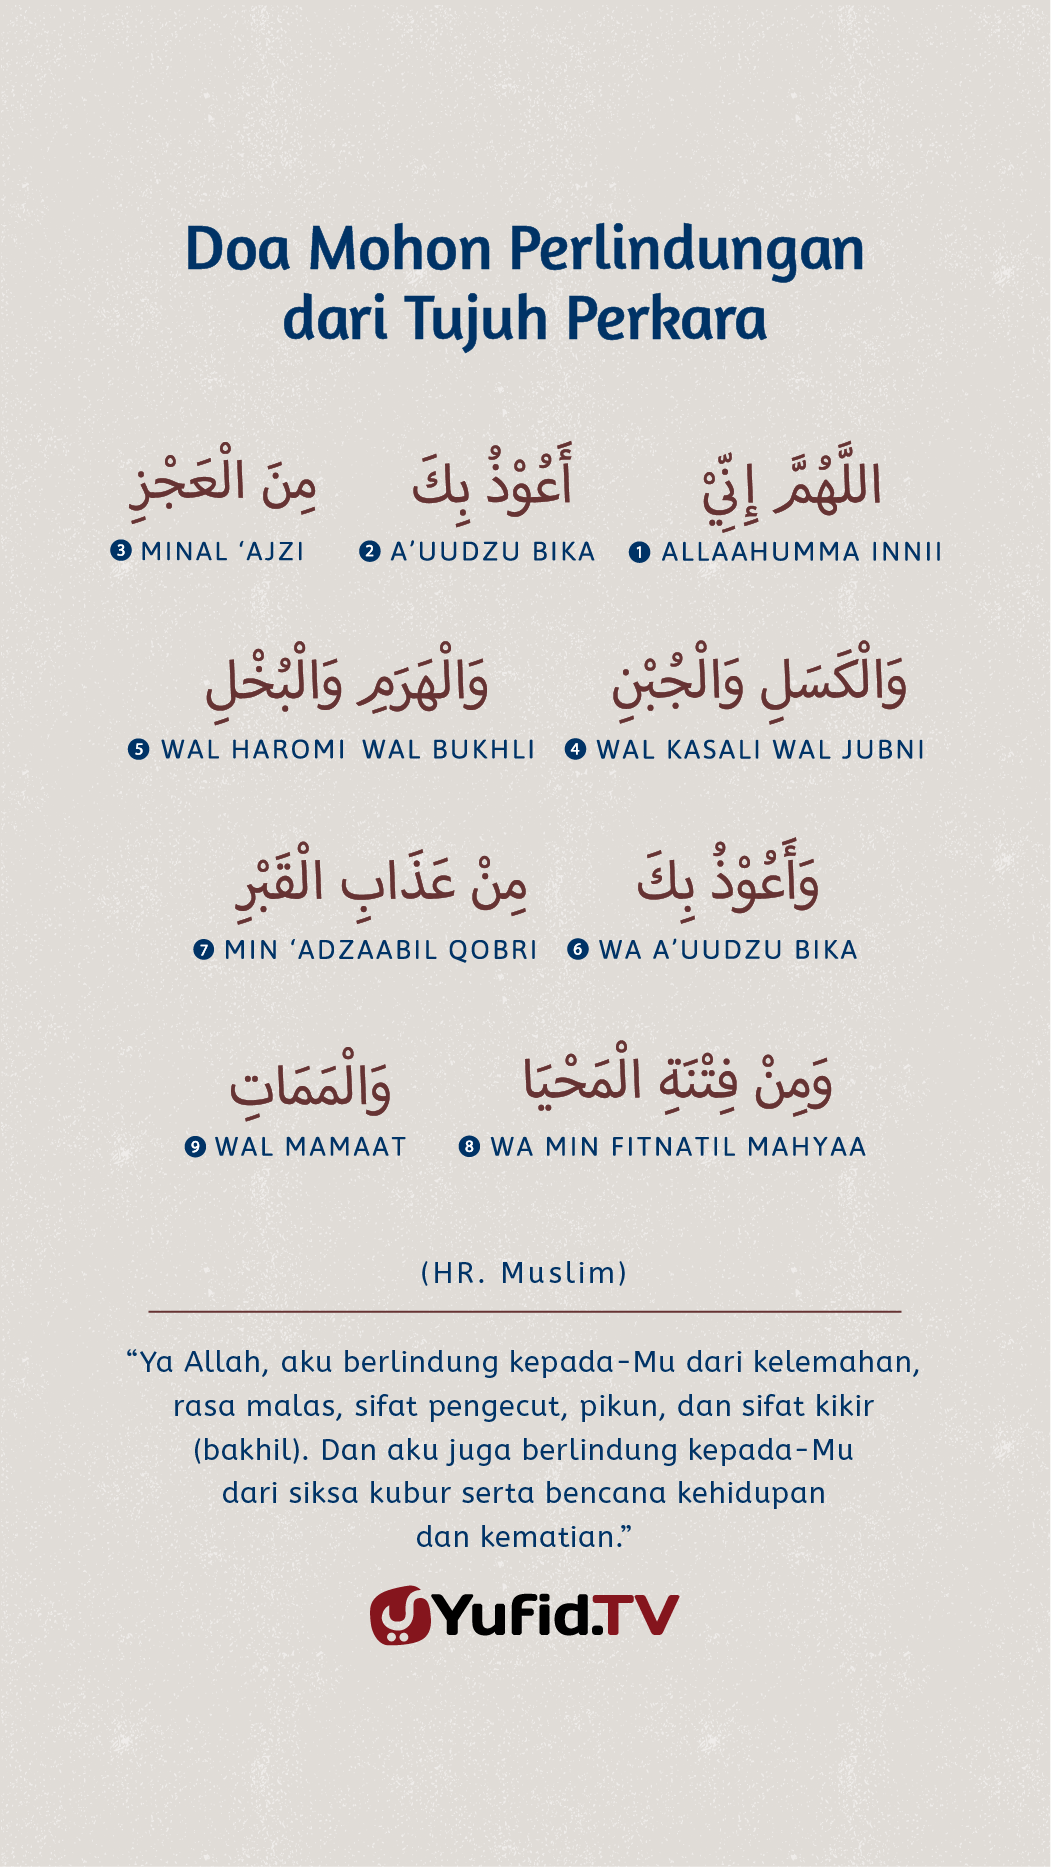 Doa Mohon Perlindungan
dari Tujuh Perkara
اللَّهُمَّ إِنِّيْ أَعُوْذُ بِكَ مِنَ الْعَجْزِ
❶ ALLAAHUMMA INNII ❷ A’UUDZU BIKA ❸ MINAL ‘AJZI
وَالْكَسَلِ وَالْجُبْنِ وَالْهَرَمِ وَالْبُخْلِ
❹ WAL KASALI WAL JUBNI ❺ WAL HAROMI WAL BUKHLI
وَأَعُوْذُ بِكَ مِنْ عَذَابِ الْقَبْرِ
❻ WA A’UUDZU BIKA ❼ MIN ‘ADZAABIL QOBRI
وَمِنْ فِتْنَةِ الْمَحْيَا وَالْمَمَاتِ
❽ WA MIN FITNATIL MAHYAA ❾ WAL MAMAAT
(HR. Muslim)
“Ya Allah, aku berlindung kepada-Mu dari kelemahan,
rasa malas, sifat pengecut, pikun, dan sifat kikir
(bakhil). Dan aku juga berlindung kepada-Mu
dari siksa kubur serta bencana kehidupan
dan kematian.”
Yufid.TV